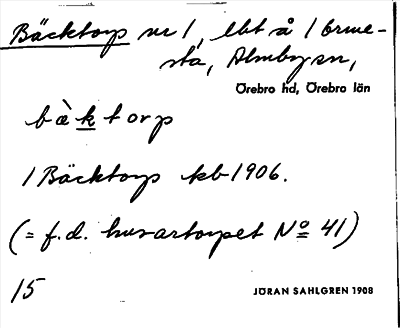 Bäcktorp nr 1, lbt å 1 Orme-
sta, Almby sn,
Örebro hd, Örebro län
bàktorp
1 Bäcktorp kb 1906.
(= f.d. husartorpet No 41)
15
JÖRAN SAHLGREN 1908